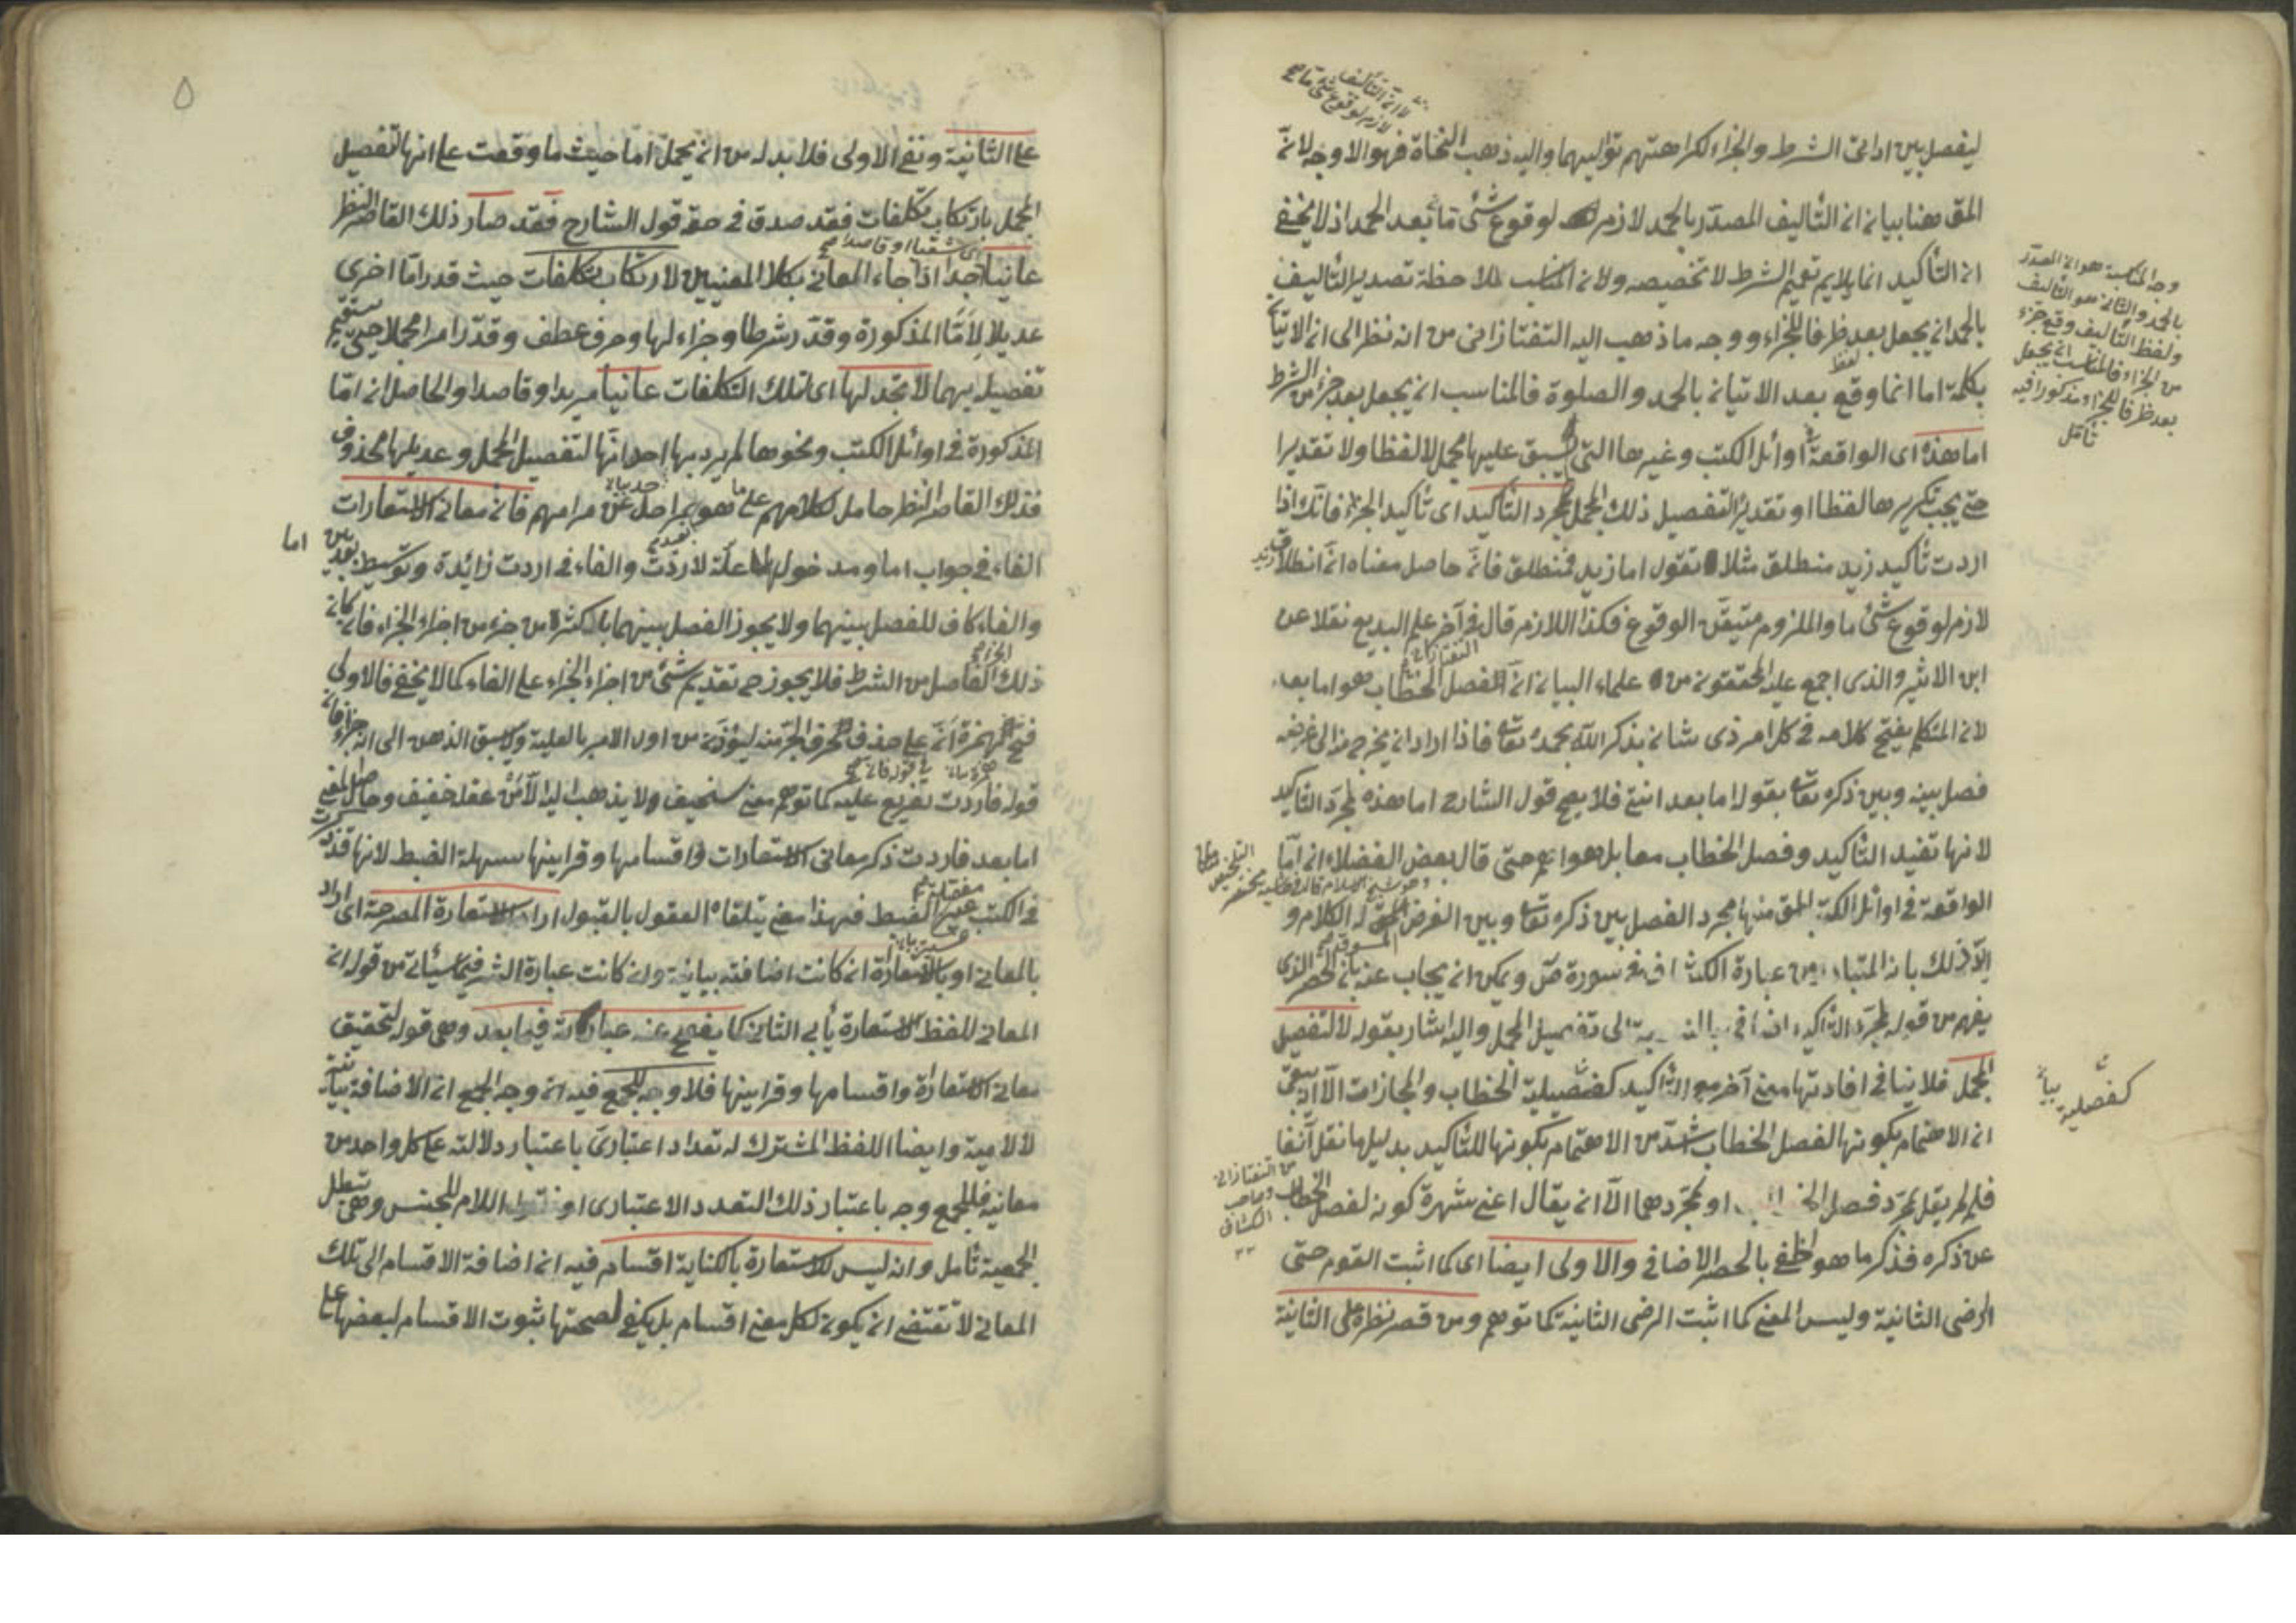 ليفصل بين اداتى الشرط والجزاء لكراهتهم تواليهما واليه ذهب النحاة فهو الاوجه لانّ
المق هنا بيان ان التأليف المصدّر بالحمد لازم لوقوع شئ ما بعد الحمد اذ لا يخفى
ان التأكيد انما يلايم تعميم الشرط لا تخصيصه ولان المناسب لملاحظة تصدير التأليف
بالحمد ان يجعل بعد ظرفا للجزاء ووجه ما ذهب اليه التفتازانى من انه نظر الى ان الاتيان
بكلمة اما انما وقع بعد الاتيان بالحمد والصلوة فالمناسب ان يجعل بعد جزء من الشرط
اما هذه اى الواقعة فى اوائل الكتب وغيرها التى لم يسبق عليها مجمل لا لفظا ولا تقديرا
حتى يجب تكريرها لفظا او تقديرا لتفصيل ذلك المجمل لمجرد التأكيد اى تأكيد الجزاء فانك اذا
اردت تأكيد زيد منطلق مثلا تقول اما زيد فمنطلق فانه حاصل معناه ان انطلاق زيد
لازم لوقوع شئ ما والملزوم متيقن الوقوع فكذا اللازم قال فى آخر علم البديع نقلا عن
ابن الاثير والذى اجمع عليه المحققون من علماء البيان ان الفصل الخطاب هو اما بعد
لان المتكلم يفتح كلامه فى كل امر ذى شان بذكر الله بحمده تعالى فاذا اراد ان يخرج منه الى غرضه
فصل بينه وبين ذكره تعالى بقوله اما بعد انتهى فلا يصح قول الشارح اما هذه لمجرّد التأكيد
لانها تفيد التأكيد وفصل الخطاب معا بل هو اهم حتى قال بعض الفضلاء ان امّا
الواقعة فى اوائل الكتب المق منها مجرد الفصل بين ذكره تعالى وبين الغرض المسوق له الكلام و
ذلك بان المتبادر من عبارة الكشاف فى سورة صّ ويمكن ان يجاب عنه بان الحصر الذى
يفهم من قوله لمجرّد التأكيد اضافى بالنسبة الى تفصيل المجمل واليه اشار بقوله لا لتفصيل
المجمل فلا ينافى افادتها معنى آخر مع التأكيد كفصّيلية الخطاب والمجازات الّا ان يبقى
ان الاهتمام بكونها لفصل الخطاب اشدّ من الاهتمام بكونها للتأكيد بدليل ما نقل آنفا
فلم لم يقل لمجرّد فصل الخطاب او لمجرّدهما الّا ان يقال اغنى شهرة كونه لفصل الخطاب
عن ذكره فذكر ما هو اخفى بالحصر الاضافى والاولى ايضا اى كما اثبت القوم حتى
الرضى الثانية وليس المعنى كما اثبت الرضى الثانية كما توهم ومن قصر نظره على الثانية
وجه المناسبة هو ان المصدّر
بالحمد والثانى هو التأليف
ولفظ التأليف وقع جزء
من الجزاء فالمناسب ان يجعل
بعد ظرفا للجزاء ومذكورا فيه
تأمّل
كفصّلية بيان
من التفتازانى
وصاحب
الكشاف
٥
على الثانية ونفى الاولى فلا بد له من ان يحمل اما حيث ما وقعت على انها لتفصيل
المجمل بارتكاب تكلفات فقد صدق فى حقه قول الشارح فقد صار ذلك القاصر النظر
عانيا جدا اذا جاء المعانى بكلا المعنيين لارتكاب تكلفات حيث قدر امّا اخرى
عديلا لِأمّا المذكورة وقدّر شرطا وجزاء لها وحرف عطف وقدّر امرا مجملا حتى يستقيم
تفصيله بهما لا تجد لها اى لتلك التكلفات عانيا مريدا وقاصدا والحاصل ان امّا
المذكورة فى اوائل الكتب ونحوها لم يرد بها احد انّها لتفصيل المجمل وعديلها محذوف
فذلك القاصر النظر حامل لكلامهم على ما هو بمراحل عن مرامهم فان معانى الاستعارات
الفاء فى جواب اما ومدخولها علة لاردت والفاء فى اردت زائدة وتوسيط بعد بين اما
والفاء كاف للفصل بينهما ولا يجوز الفصل بينهما باكثر من جزء من اجزاء الجزاء فان كان
ذلك الفاصل من الشرط فلا يجوز ح تقديم شئ من اجزاء الجزاء على الفاء كما لا يخفى فالاولى
فتح همزة انّ على حذف حرف الجرّ منه ليؤذن من اول الامر بالعلية ولا يسبق الذهن الى انه جزاء فان
قوله فاردت تفريع عليه كما توهم معنى سخيف ولا يذهب اليه الّا مَنْ عقله خفيف وحاصل المعنى
اما بعد فاردت ذكر معانى الاستعارات واقسامها وقراينها سهلة الضبط لانها قد ذكرت
فى الكتب عسير الضبط فهذا معنى يتلقاه العقول بالقبول اراد الاستعارة المصرحة اى اراد
بالمعانى او بالاستعارة ان كانت اضافته بيانية وان كانت عبارة الشر فيما سيأتى من قوله ان
المعانى للفظ الاستعارة يأبى الثانى كما يفصح عنه عبارته فيما بعد وهى قوله لتحقيق
معانى الاستعارة واقسامها وقراينها فلا وجه للجمع فيه ان وجه الجمع ان الاضافة بيانية
لا لامية وايضا اللفظ المشترك له تعداد اعتبارىّ باعتبار دلالته على كل واحد من
معانيه فللجمع وجه باعتبار ذلك التعدد الاعتبارى او نقول اللام للجنس وهى تبطل
الجمعية تأمل وانه ليس للاستعارة بالكناية اقسام فيه ان اضافة الاقسام الى تلك
المعانى لا تقتضى ان يكون لكل معنى اقسام بل يكفى لصحتها ثبوت الاقسام لبعضها على